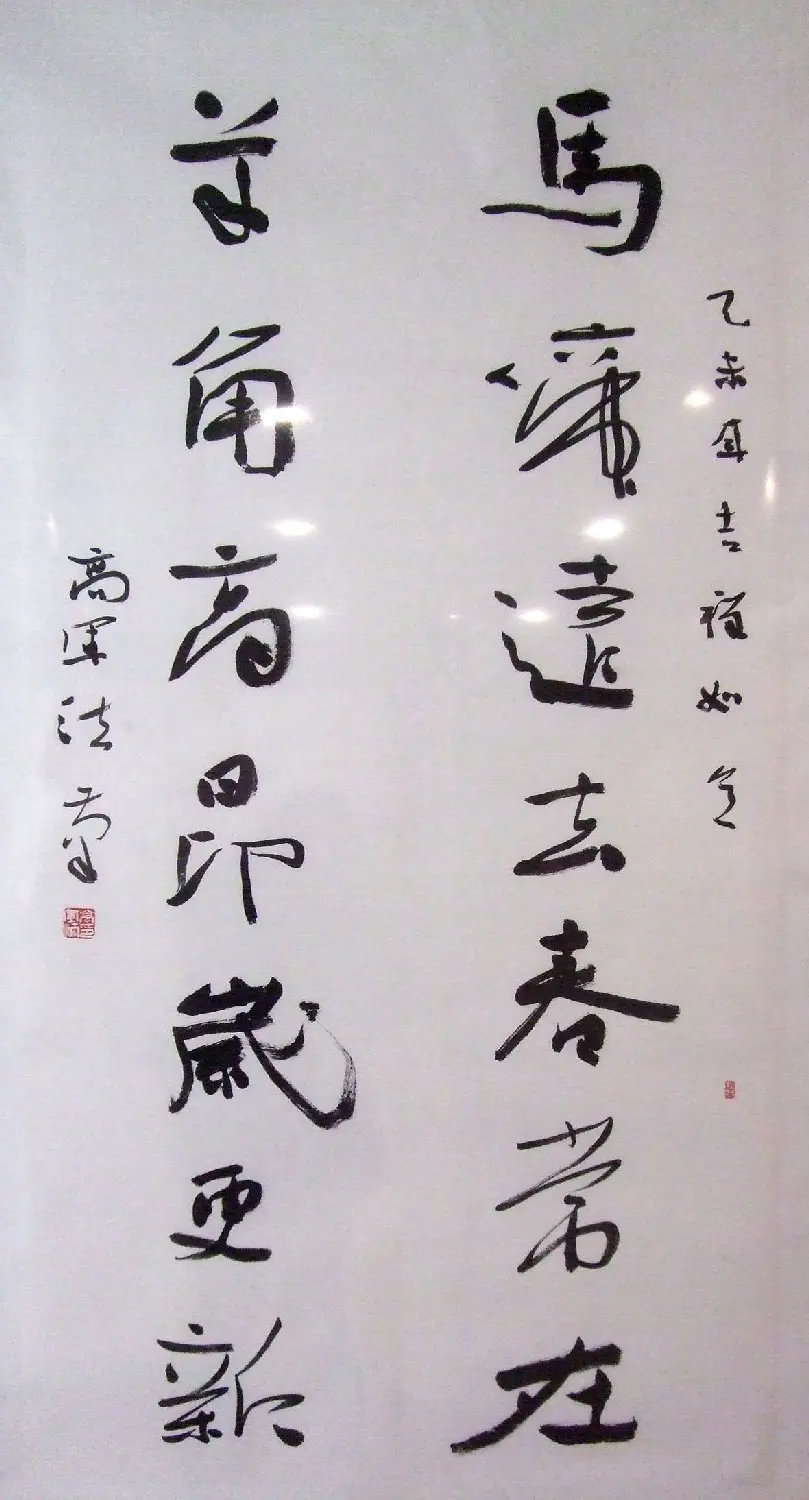 乙未年吉祥如意
馬蹄遠去春常在
羊角高昂歲更新
高軍法